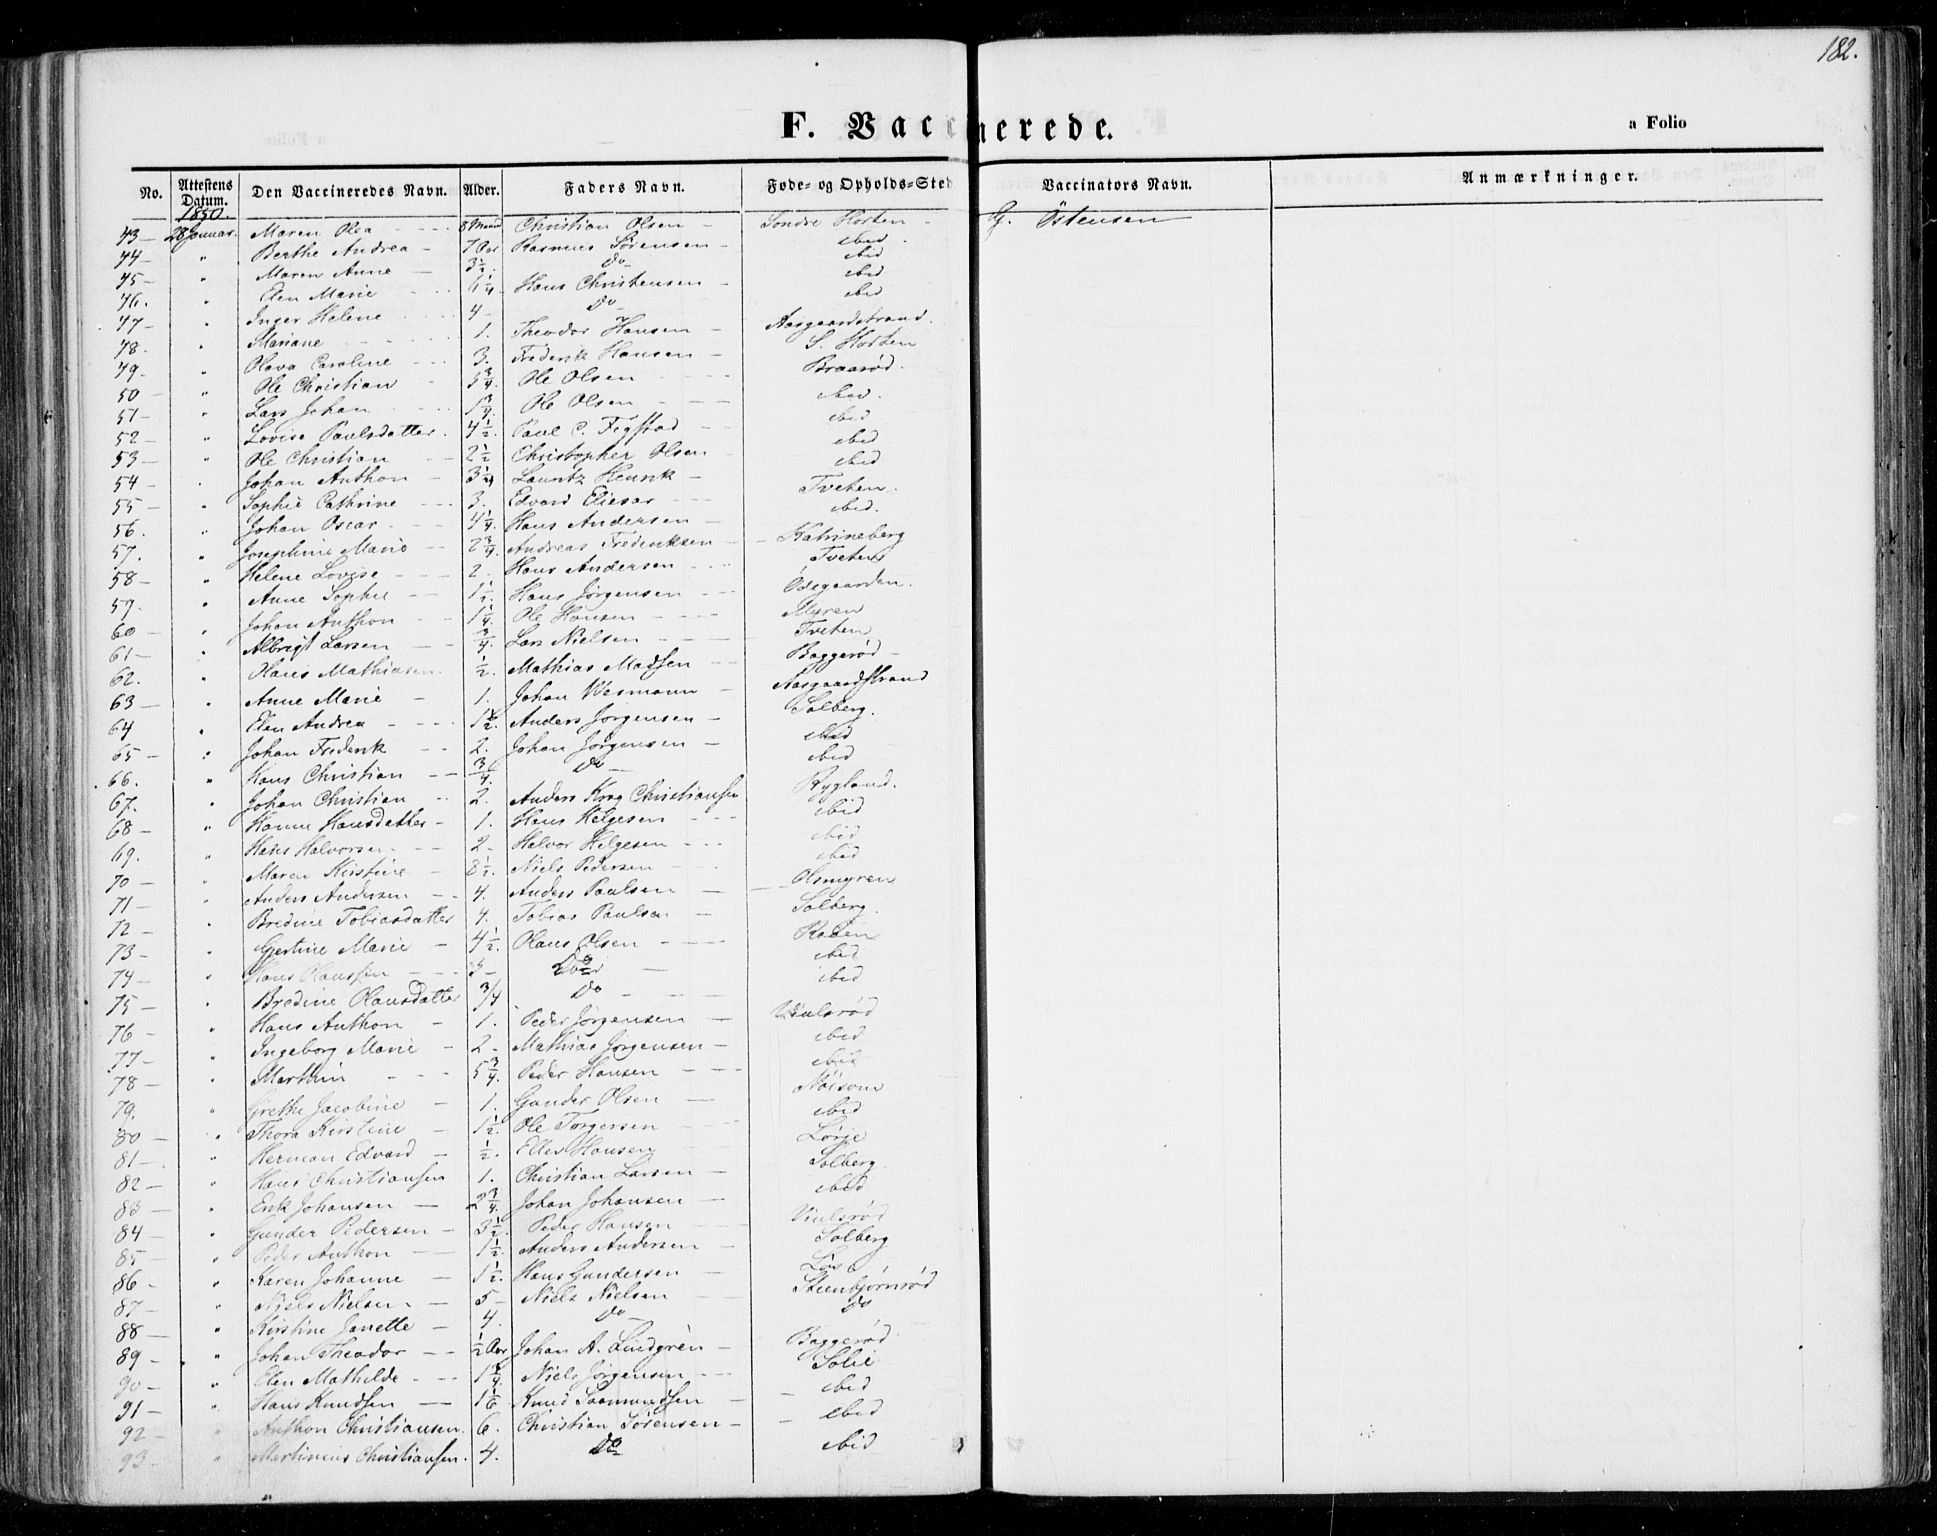 182.
F. Vaccinerede.
a Folio
No. Attestens Datum. Den Vaccineredes Navn. Alder. Faders Navn. Føde- og Opholds-Sted Vaccinators Navn. Anmærkninger.
1850.
43 — 28 Januar. Maren Olea 8 Maand Christian Olsen Søndre Horten G. Østensen
44 — " Berthe Andrea 7 Aar Rasmus Sørensen ibid
45 — " Maren Anne 3 1/2 Do ibid
46. " Elen Marie 6 1/4 Hans Christensen ibid
47 — " Inger Helene 4 Do ibid
48. " Mariane 1. Theodor Hansen Aasgaardstrand.
49. " Olava Caroline 3. Frederik Hansen S. Horten
50 — " Ole Christian 5 3/4 Ole Olsen Braarød.
51 — " Lars Johan 1 3/4 Ole Olsen ibid.
52 — " Lovise Paulsdatter. 4 1/2. Paul C. Figstad ibid
53 — " Ole Christian 2 1/2 Christopher Olsen ibid
54 — " Johan Anthon 3 1/4 Henrik ibid
55 — " Sophie Cathrine 3. Edvard Eliesar Tveten
56. " Johan Oscar 4 1/4 Hans Andersen ibid.
57. " Josephine Marie 2 3/4. Andreas Frederiksen Katrineberg
58 — " Helene Lovise 2. Hans Andersen Tveten
59. " Anne Sophie 1 1/2. Hans Jørgensen Ødegaarden.
60 — " Johan Anthon 1 1/4. Ole Hansen Myren
61 — " Albrigt Larsen 3/4. Lars Nielsen Tveten
62. " Olaus Mathiasen 1/2. Mathias Madsen Baggerød
63 — " Anne Marie 1. Johan Wesmann Aasgaardstrand
64 " Elen Andrea 1 1/2. Anders Jørgensen Solberg.
65 — " Johan Frederik 2. Johan Jørgensen ibid
66. " Hans Christian 3/4. Do ibid
67. " Johan Christian 2. Anders Krog Christiansen Rygland.
68 — " Hanne Hansdatter 1. Hans Helgesen ibid
69. " Hans Halvorsen 2 Halvor Helgesen ibid
70 — " Maren Kirstine 8 1/2. Niels Pedersen ibid
71 — " Anders Andersen 4. Anders Paulsen Osmyren
72 — " Bredine Tobiasdatter 4. Tobias Paulsen Solberg.
73 — " Gjertine Marie 4 1/2. Olaus Olsen
74 — " Hans Olaussen 3 Do ibid
75 — " Bredine Olausdatter 3/4 Do ibid
76 — " Hans Anthon 1. Peder Jørgensen Viulsrød
77 — " Ingeborg Marie 2 Mathias Jørgensen ibid
78 — " Marthin 5 3/4. Peder Hansen ibid
79. " Grethe Jacobine 1. Gunder Olsen
80 — " Thora Kirstine 1 1/2. Ole Torgersen ibid
81 — " Herman Edvard 1/2. Ellev Hansen
82 — " Hans Christiansen 1. Christian Larsen Solberg
83 — " Erik Johansen 2 3/4. Johan Johansen ibid
84 — " Gunder Pedersen 3 1/2. Peder Hansen Viulsrød
85 — " Peder Anthon 1 1/2. Anders Andersen Solberg
86 — " Karen Johanne 1 1/2. Hans Gundersen
87 — " Niels Nielsen 5 Niels Nielsen Steenbjørnrød
88 — " Kirstine Janette 4. Do Do
89 — " Johan Theodor 1/2 Aar Johan A. Lindgren Baggerød
90 — " Elen Mathilde 1 3/4. Niels Jørgensen Solie
91 — " Hans Knudsen 1 1/6 Knud Saamundsen ibid
92 — " Anthon Christiansen. 6. Christian Sørensen ibid
93 — " Martinius Christiansen. 4. Do ibid